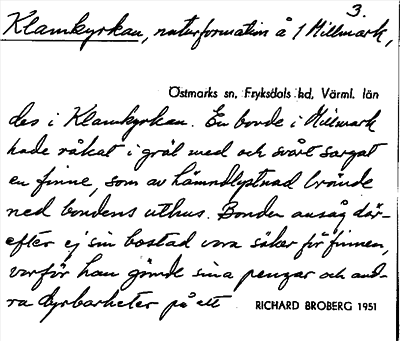 3.
Klamkyrkan, naturformation å 1 Millmark,
Östmarks sn, Fryksdals hd, Värml. län
des i Klamkyrkan. En bonde i Millmark
hade råkat i gräl med och svårt sargat
en finne, som av hämndlystnad brände
ned bondens uthus. Bonden ansåg där-
efter ej sin bostad vara säker för finnen,
varför han gömde sina pengar och and-
ra dyrbarheter på ett RICHARD BROBERG 1951